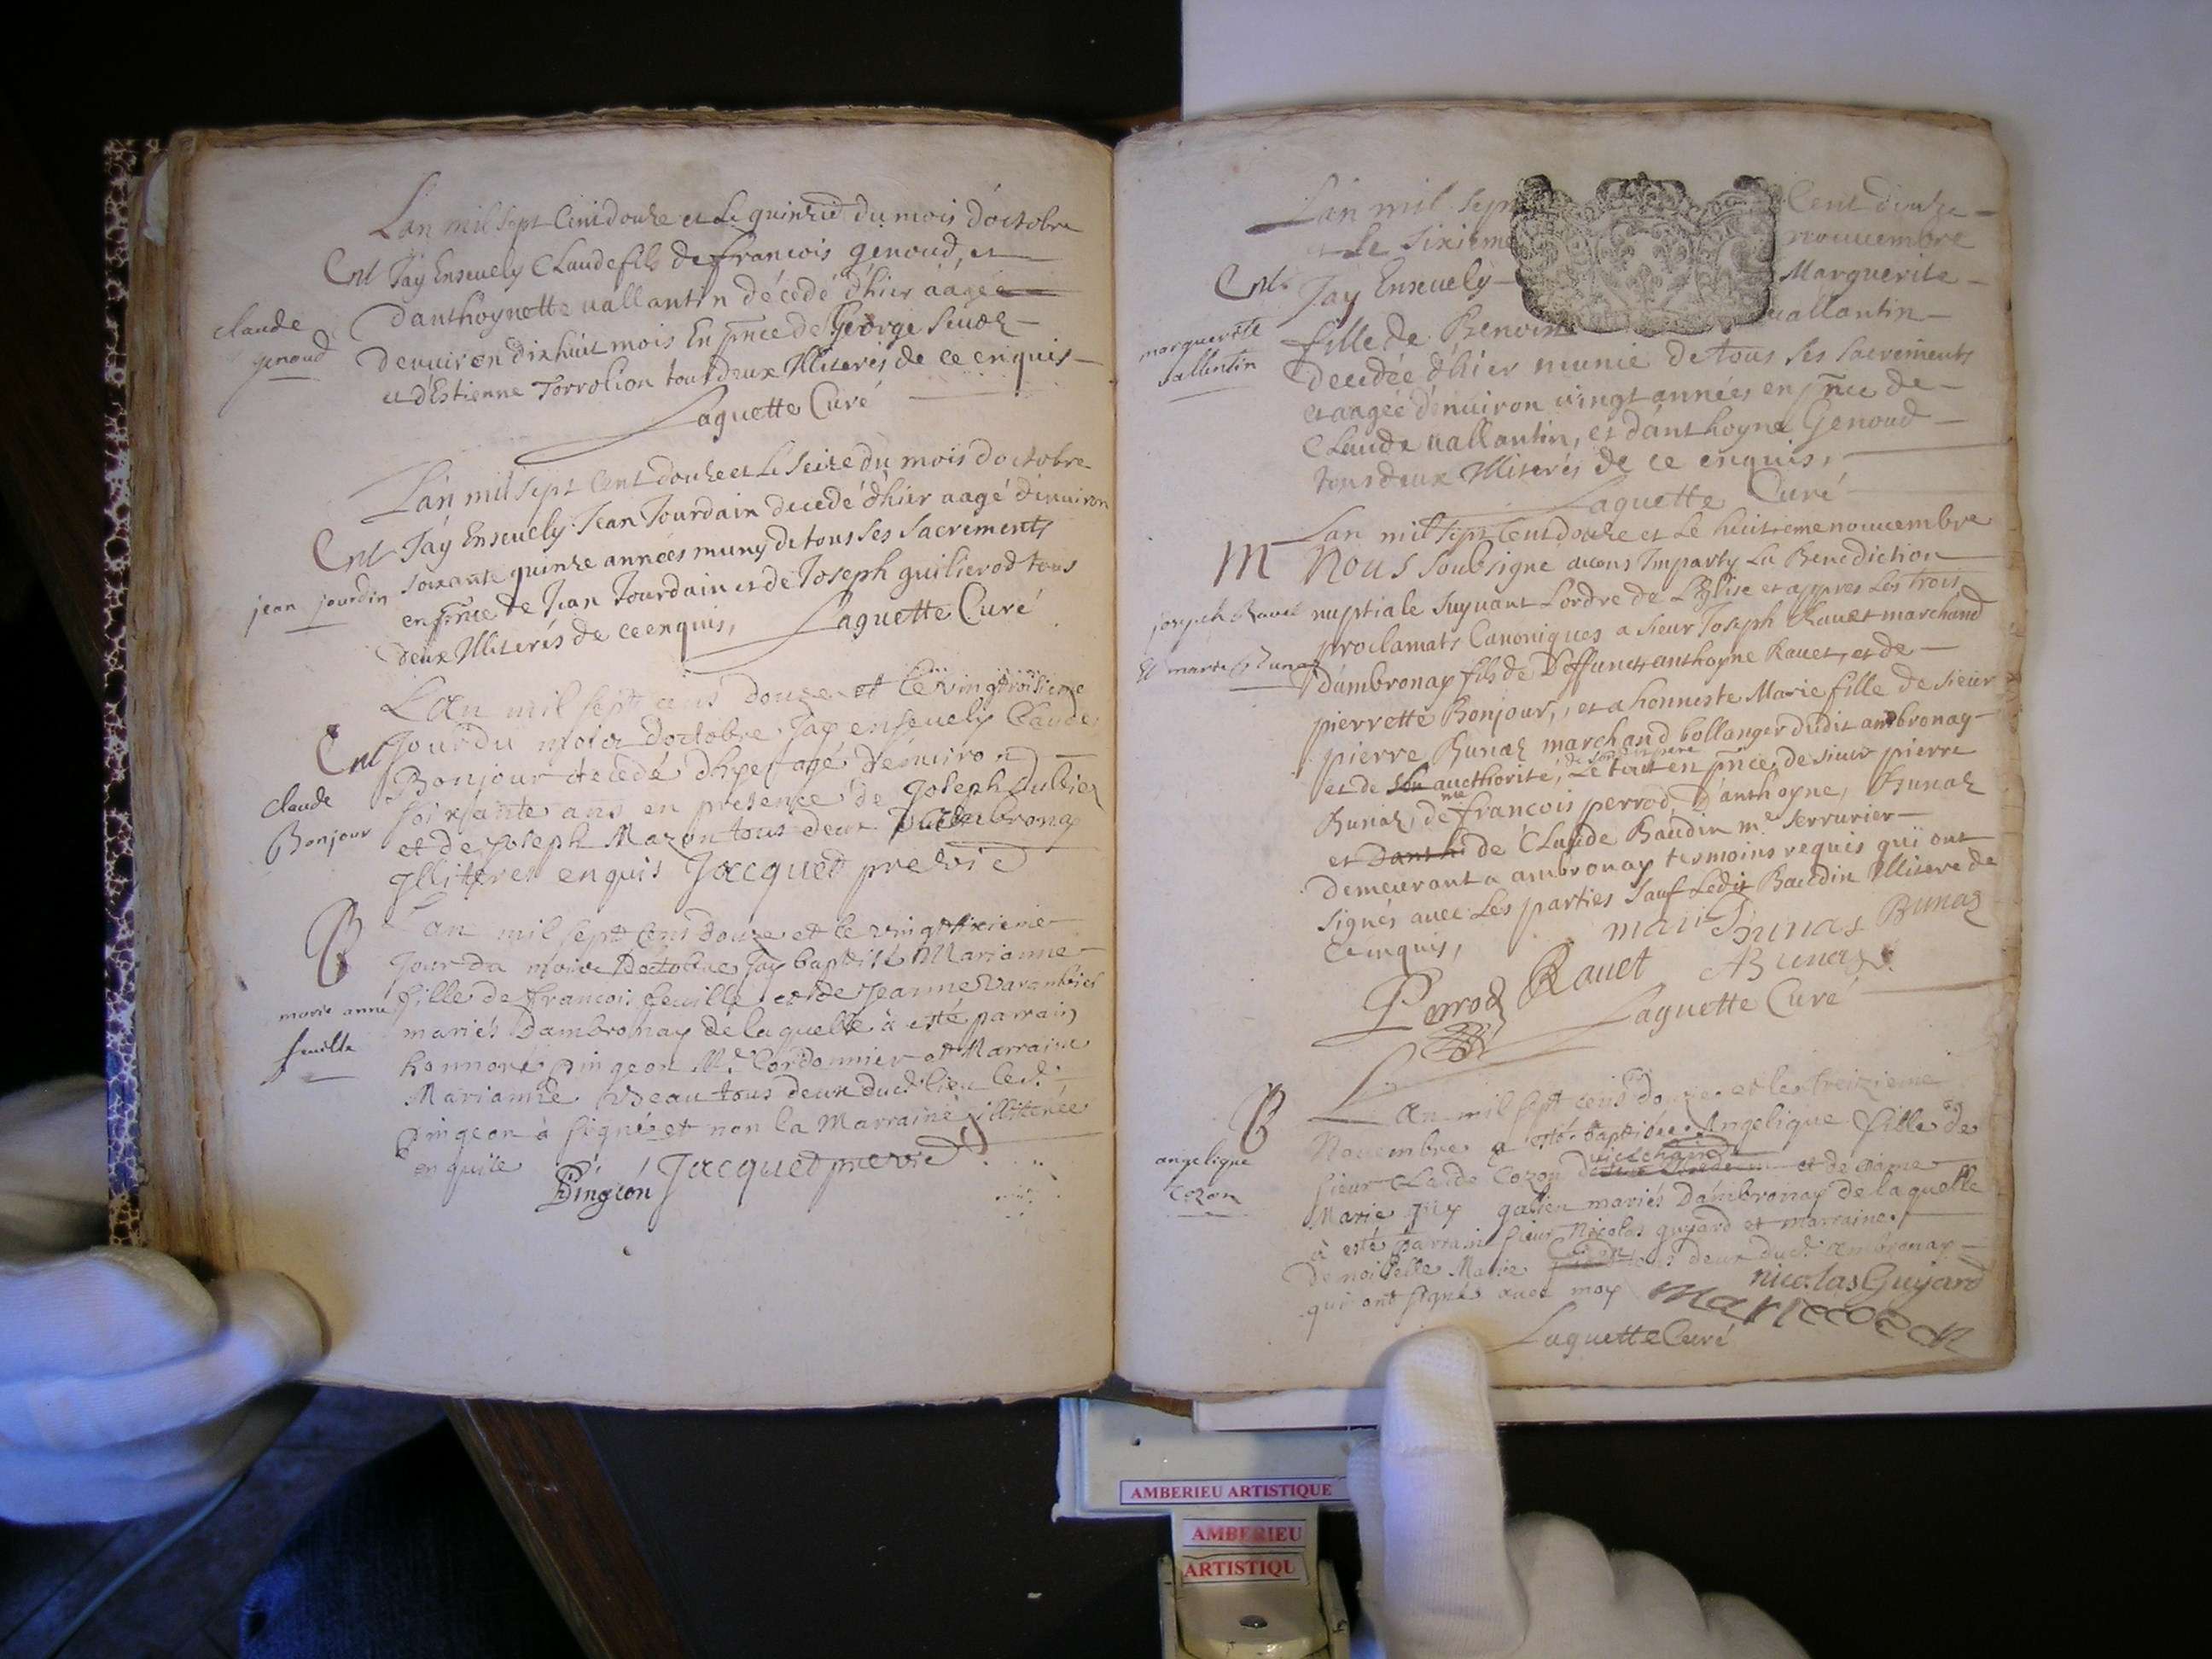 L'an mil sept Cent douze et Le quinzie du mois d'octobre
Ent J'ay Enseuely Claude fils de francois genoud, et
d'anthoynette uallantin décédé d'hier aagé
claude
genoud
d'enuiron dix huit mois En pnce de George
et d'Estienne Torrolion tous deux Illiterés de ce enquis
Laguette Curé
L'an mil sept Cent douze et Le Seize du mois doctobre
Ent J'ay Enseuely Jean Jourdain decedé d'hier aagé d'enuiron
jean jourdin
soixante quinze années muny de tous ses sacrements
en pnce de Jean Jourdain et de Joseph guilierod tous
deux Illiterés de ce enquis, Laguette Curé
L'an mil sept cens douze et le vingt troisieme
Ent Jour du mois doctobre Jay enseuely Claude
Bonjour decedé dhyer agé d'enuiron
claude
Bonjour
soixante ans en presence de Joseph Jullier
et de Joseph Mazon tous deux dambronay
Illiteres enquis Jacquet previe
B L'an mil sept cens douze et le vingt sixieme
Jour du mois Doctobre Jay baptisé Marianne
marie anne
feuille
fille de francois feuille et de Jeanne Varambier
mariés Dambronay de laquelle à esté parrain
honnore pingeon Me Cordonnier et Marraine
Marianne Veau tous deux dud. lieu led.
pingeon à signé et non la Marraine illiterée
enquise Pingeon Jacquet previe
L'an mil sept Cent douze
et le sixieme nouuembre
Ent J'ay Enseuely Marguerite
marguerite
vallentin
fille de Benoist uallantin
decedée d'hier munie de tous ses sacrements
et aagée d'enuiron uingt années en pnce de
Claude uallantin, et d'anthoyne Genoud
tous deux Illiterés de ce enquis,
Laguette Curé
L'an mil sept Cent douze et Le huitieme nouuembre
M Nous soubsigné auons Imparty La Benediction
joseph Rauet
Et marie Bunaz
nuptiale suyuant L'ordre de L'Eglise et appres Les trois
proclamats Canoniques a sieur Joseph Rauet marchand
d'ambronay fils de Deffunct anthoyne Rauet, et de
pierrette Bonjour, et a honneste Marie fille de sieur
pierre Bunaz marchand bollanger dudit ambronay
et de son aucthorité, de sond. pere Le tout en pnce de sieur pierre
Bunaz, de me francois perrod, d'anthoyne, Bunaz
et d'anth de Claude Baudin me serrurier
demeurant a ambronay tesmoins requis qui ont
signés auec Les parties sauf Ledit Baudin Illiteré de
ce enquis, mari Bunas Bunaz
Perrod Rauet A Bunaz
Laguette Curé
B L'an mil sept cens douze et le treizieme
Nouembre a esté baptisée Angelique fille de
angelique
cozon
sieur Claude Cozon marchand et de dame
Marie guy galien mariés Dambronay de laquelle
à esté parrain sieur Nicolas guyard et marraine
Demoiselle Marie Cozon tous deux dud. ambronay
qui ont signés avec moy nicolas Guyard
marie cozon
Laguette Curé
AMBERIEU ARTISTIQUE
AMBERIEU
ARTISTIQU